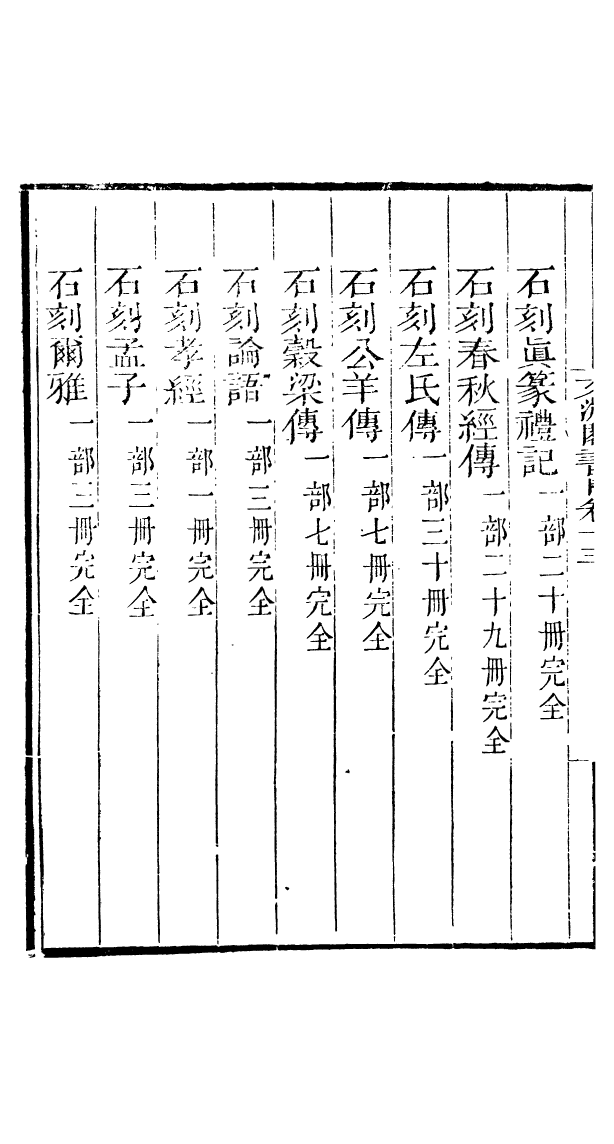 石刻眞篆禮記一部二十冊完全
石刻春秋經傳一部二十九冊完全
石刻左氏傳一部三十冊完全
石刻公羊傳一部七冊完全
石刻穀梁傳一部七冊完全
石刻論語一部三冊完全
石刻孝經一部一冊完全
石刻孟子一部三冊完全
石刻爾雅一部三冊完全